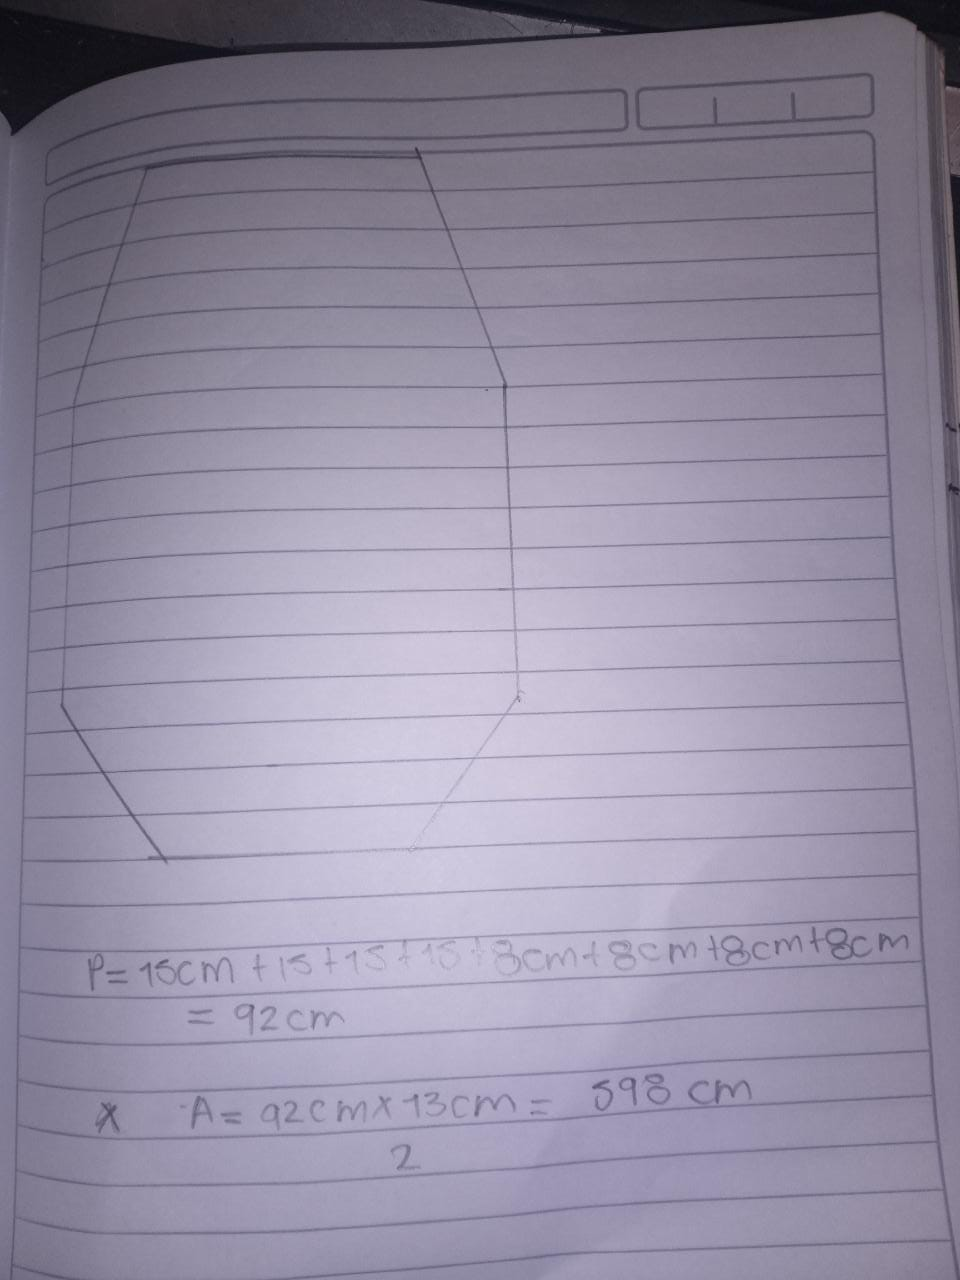 P= 15cm +15+15+15+8cm+8cm+8cm+8cm
= 92cm
* A= 92cm×13cm = 598 cm
2